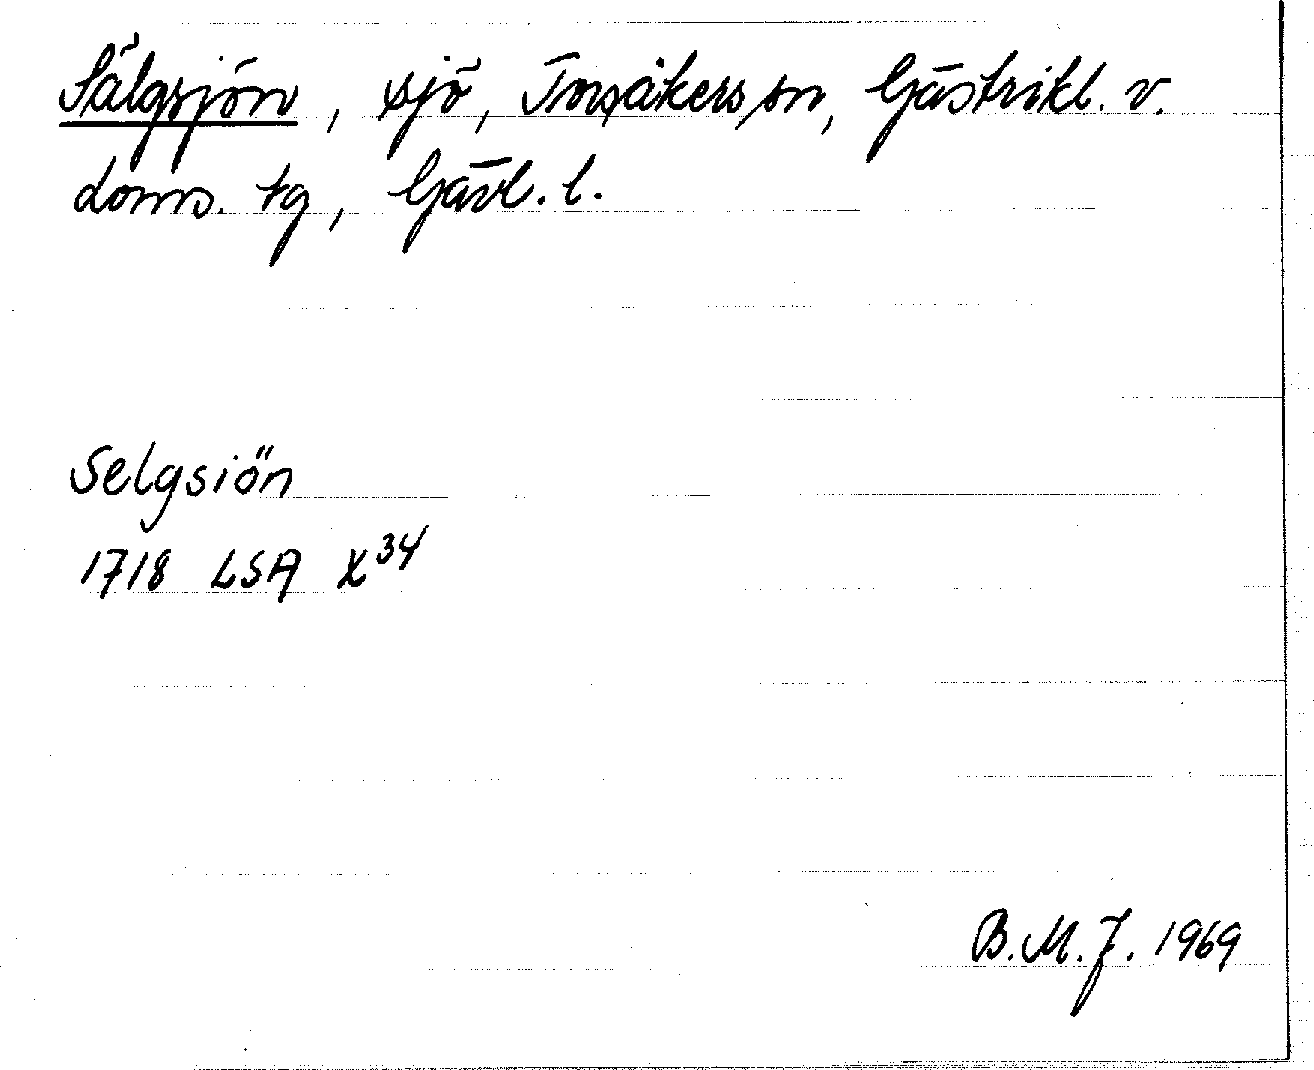 Sälgsjön, sjö, Torsåkers sn, Gästrikl. v.
doms. tg, Gävl. l.
Selgsiön
1718 LSA X³⁴
B.M.J. 1969